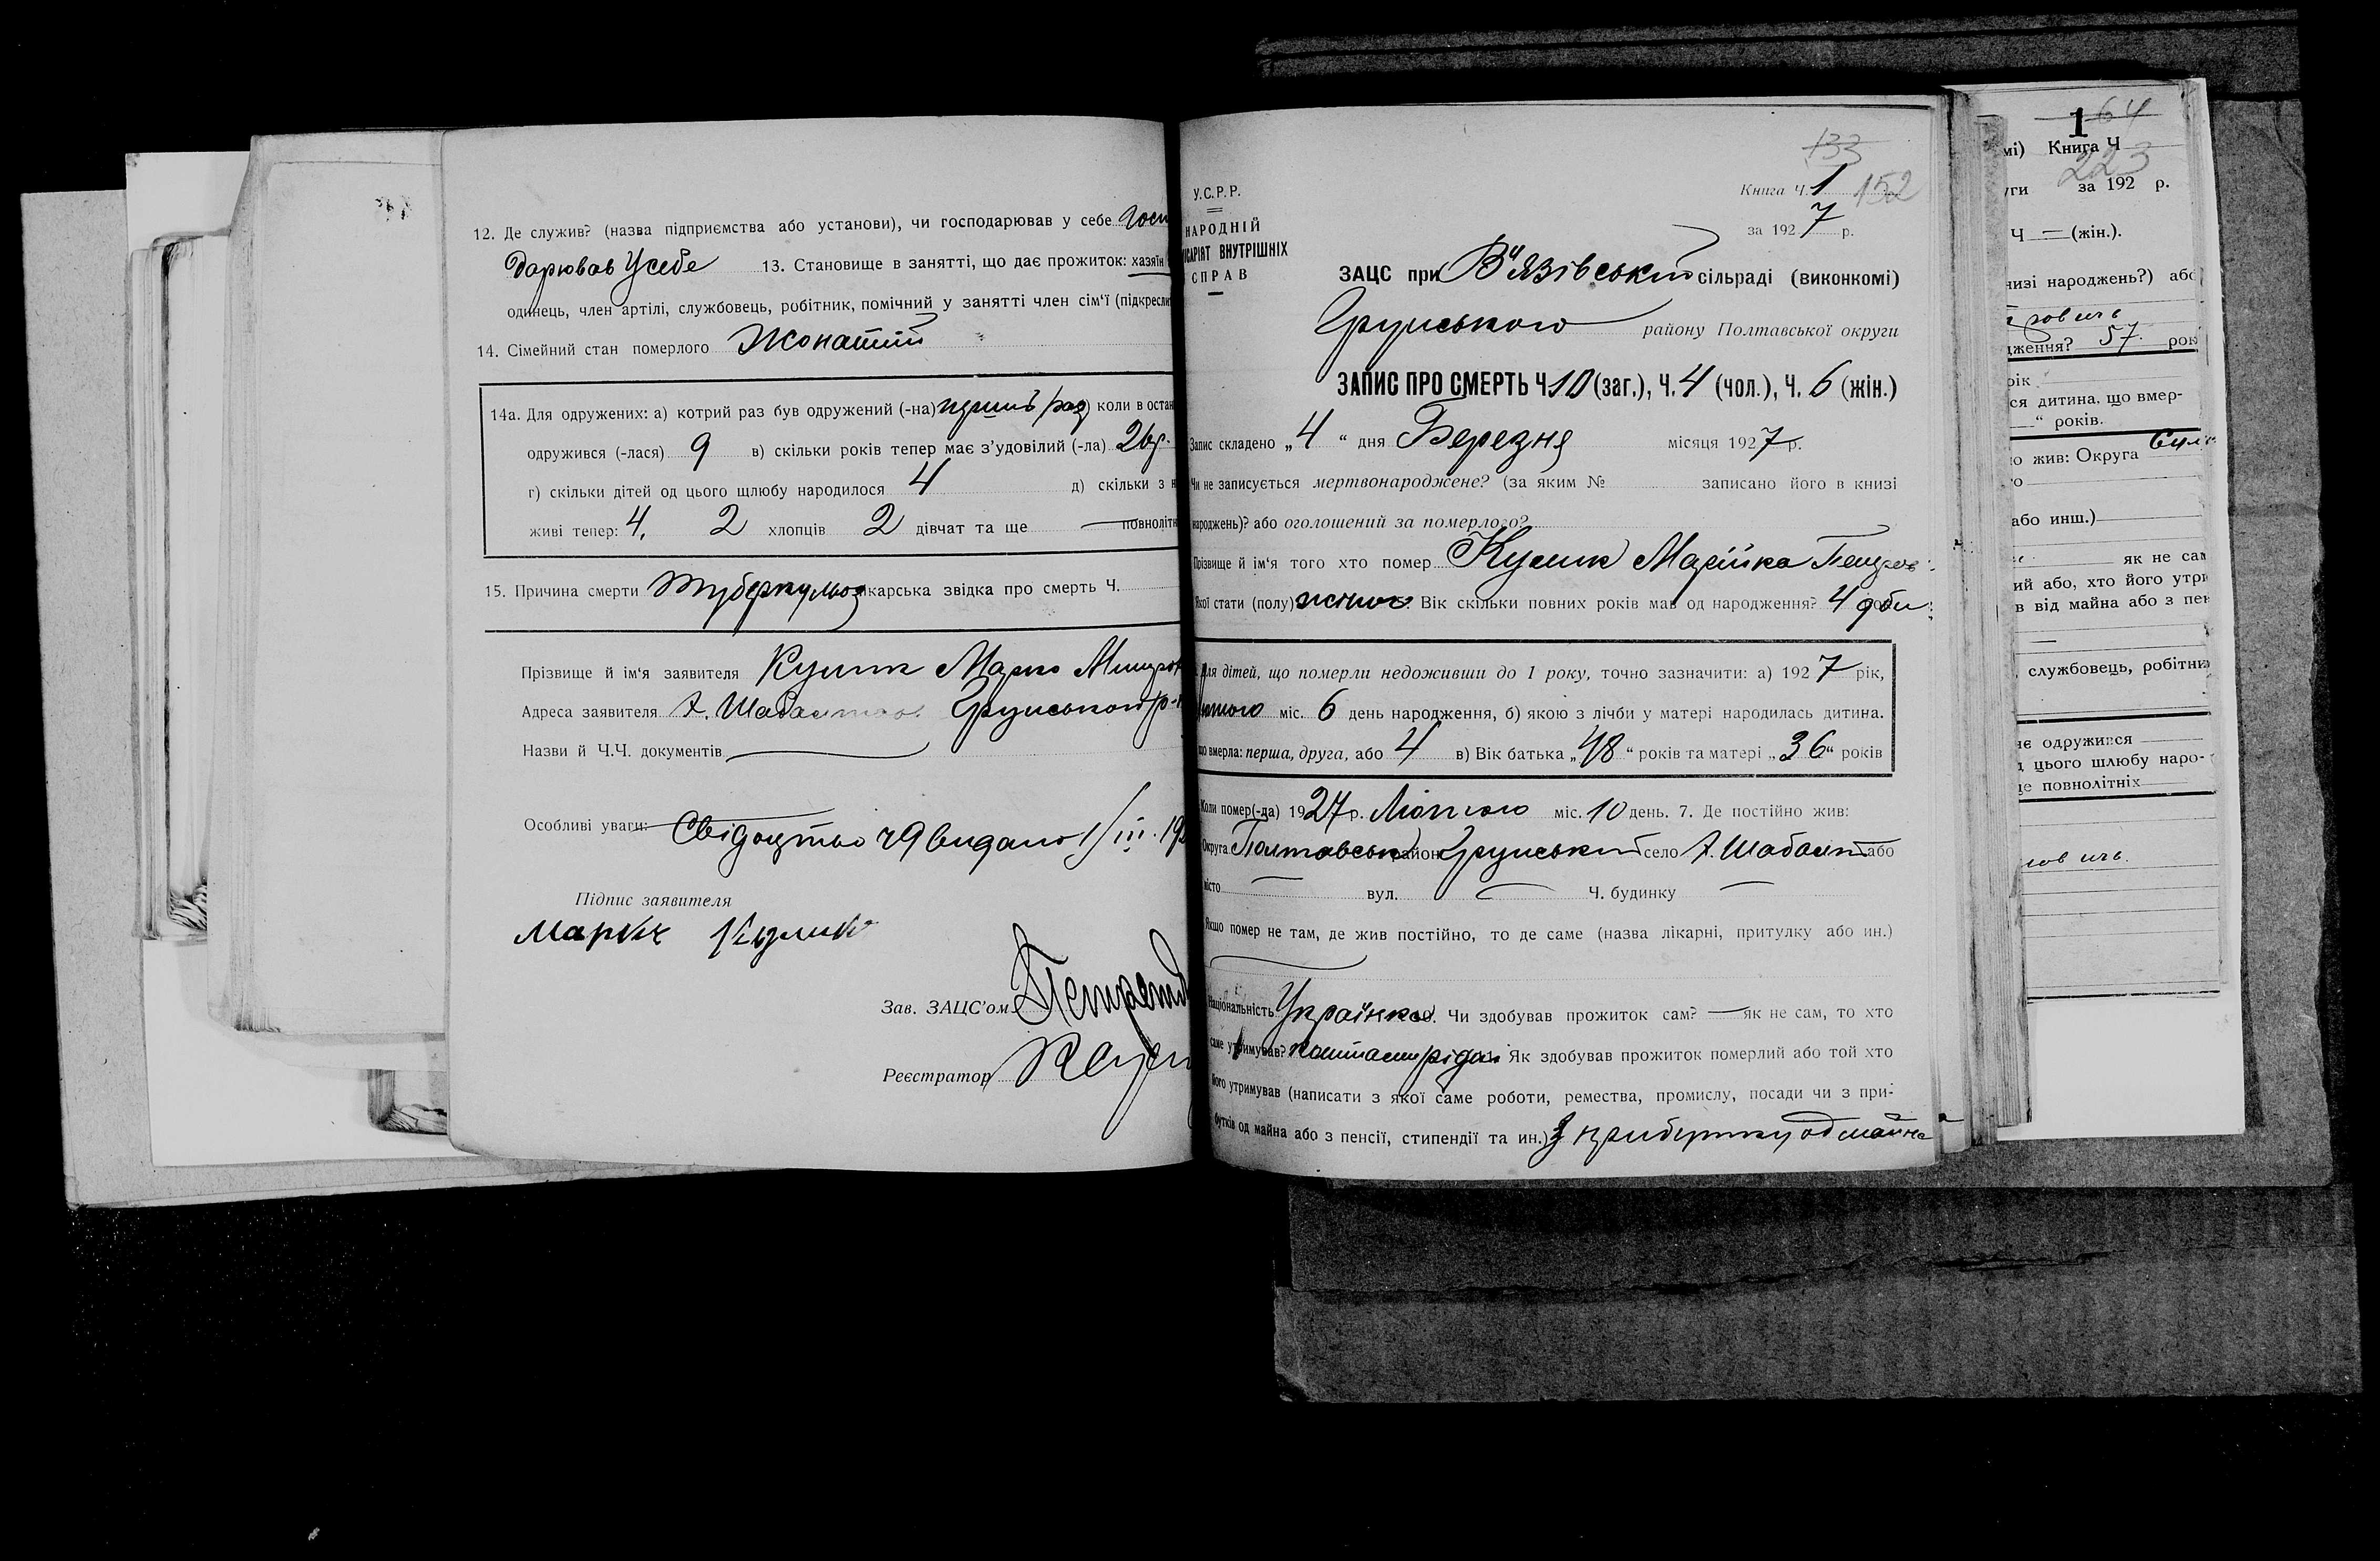 12. Де служив? (назва підприємства або установи), чи господарював у себе Госп
Дарював Усебе 13. Становище в занятті, що дає прожиток: хазяїн
одинець, член артілі, службовець, робітник, помічний у занятті член сім'ї (підкресли
14. Сімейний стан померлого Жонатий
14а. Для одружених: а) котрий раз був одружений (-на) перший раз) коли в остан
одружився (-лася) 9 в) скільки років тепер має з'удовілий (-ла) 26р.
г) скільки дітей од цього щлюбу народилося 4 д) скільки з н
живі тепер: 4. 2 хлопців 2 дівчат та ще — повноліт
15. Причина смерти Туберкульоз карська звідка про смерть Ч.
Прізвище й ім'я заявителя Кулик Марко
Адреса заявителя х. Грунського р-
Назви й Ч.Ч. документів
Особливі уваги: Свідоцтво ч 9 видано 1/III. 192
Підпис заявителя
Марко Кулик
Зав. ЗАЦС'ом
Реєстратор
133
Книга Ч. 1 152
за 1927 р.
У.С.Р.Р.
НАРОДНІЙ
ІСАРІЯТ ВНУТРІШНІХ
СПРАВ
ЗАЦС при В"язівський сільраді (виконкомі)
Грунського району Полтавської округи
ЗАПИС ПРО СМЕРТЬ Ч 10 (заг.), Ч. 4 (чол.), Ч. 6 (жін.)
Запис складено „4 “ дня Березня місяця 1927 р.
Чи не записується мертвонароджене? (за яким № записано його в книзі
народжень)? або оголошений за померлого?
Прізвище й ім'я того хто помер Кулик Марійка
Якої стати (полу) жіноч. Вік скільки повних років мав од народження? 4 доби
Для дітей, що померли недоживши до 1 року, точно зазначити: а) 1927 рік,
лютого міс. 6 день народження, б) якою з лічби у матері народилась дитина.
що вмерла: перша, друга, або 4 в) Вік батька „48“ років та матері „36“ років
Коли помер(-да) 1927 р. Лютого міс. 10 день. 7. Де постійно жив:
Округа Полтавськ район Грунський село х. або
місто — вул. — Ч. будинку —
Якщо помер не там, де жив постійно, то де саме (назва лікарні, притулку або ин.)
Національність Українка. Чи здобував прожиток сам? — як не сам, то хто
саме утримував? Коштами рідні Як здобував прожиток померлий або той хто
його утримував (написати з якої саме роботи, ремества, промислу, посади чи з при-
бутків од майна або з пенсії, стипендії та ин.) З прибутку од майна
1 64
мі) Книга Ч
223
уги за 192 р.
Ч — (жін.).
низі народжень?) або
дження? 57 рок
рік
ся дитина, що вмер-
“ років.
о жив: Округа
або инш.)
як не сам
ий або, хто його утри
в від майна або з пен
службовець, робітни
не одружився
д цього шлюбу наро-
ще повнолітніх